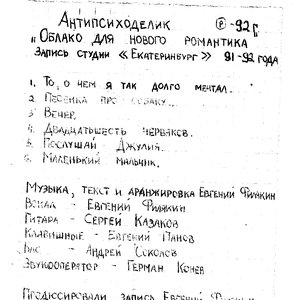 Антипсиходелик ℗-92г.
"Облако для нового романтика
Запись студии «Екатеринбург» 91-92 года
1. То, о чем я так долго мечтал.
2. Песенка про собаку...
3. Вечер.
4. Двадцатьшесть червяков.
5. Послушай Джулия.
6. Маленький мальчик.
Музыка, текст и аранжировка Евгений Филякин
Вокал - Евгений Филякин
Гитара - Сергей Казаков
Клавишные - Евгений Панов
Бас - Андрей Соколов
Звукооператор - Герман Конев
Продюссировали запись Евгений